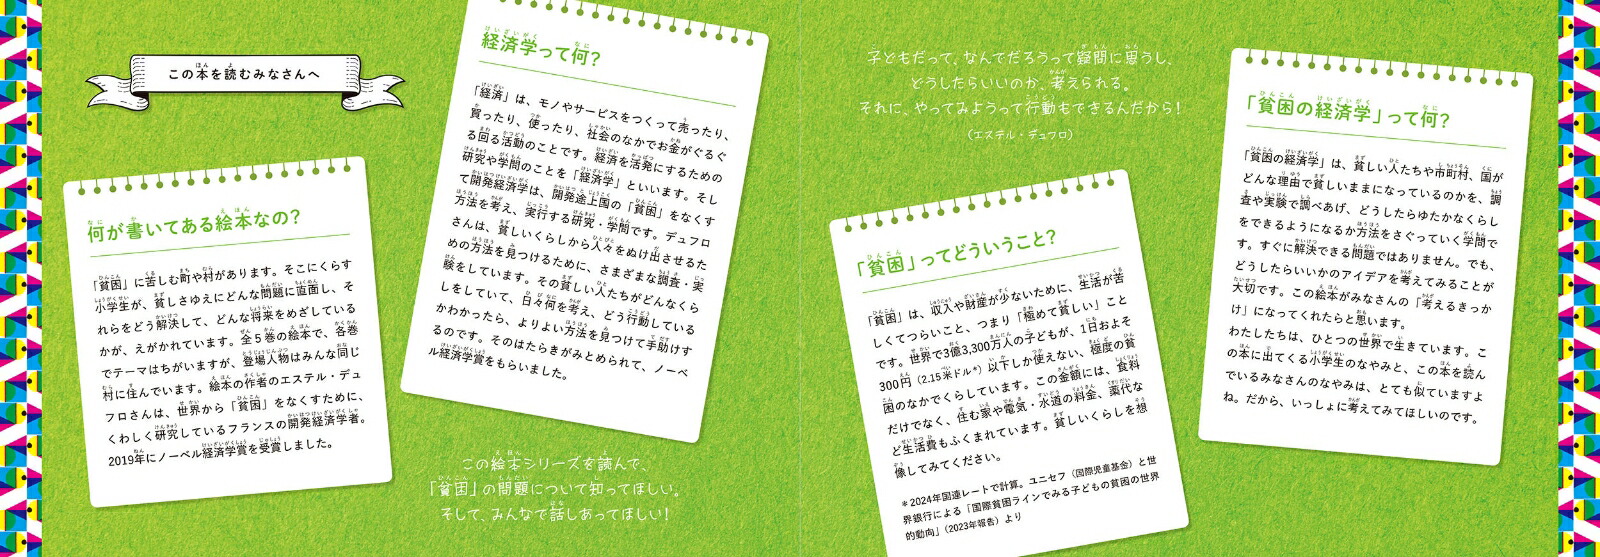 この本を読むみなさんへ
何が書いてある絵本なの?
「貧困」に苦しむ町や村があります。そこにくらす
小学生が、貧しさゆえにどんな問題に直面し、そ
れらをどう解決して、どんな将来をめざしている
かが、えがかれています。全5巻の絵本で、各巻
でテーマはちがいますが、登場人物はみんな同じ
村に住んでいます。絵本の作者のエステル・デュ
フロさんは、世界から「貧困」をなくすために、
くわしく研究しているフランスの開発経済学者。
2019年にノーベル経済学賞を受賞しました。
経済学って何?
「経済」は、モノやサービスをつくって売ったり、
買ったり、使ったり、社会のなかでお金がぐるぐ
る回る活動のことです。経済を活発にするための
研究や学問のことを「経済学」といいます。そし
て開発経済学は、開発途上国の「貧困」をなくす
方法を考え、実行する研究・学問です。デュフロ
さんは、貧しいくらしから人々をぬけ出させるた
めの方法を見つけるために、さまざまな調査・実
験をしています。その貧しい人たちがどんなくら
しをしていて、日々何を考え、どう行動している
かわかったら、よりよい方法を見つけて手助けす
るのです。そのはたらきがみとめられて、ノーベ
ル経済学賞をもらいました。
この絵本シリーズを読んで、
「貧困」の問題について知ってほしい。
そして、みんなで話しあってほしい!
子どもだって、なんでだろうって疑問に思うし、
どうしたらいいのか、考えられる。
それに、やってみようって行動もできるんだから!
(エステル・デュフロ)
「貧困」ってどういうこと?
「貧困」は、収入や財産が少ないために、生活が苦
しくてつらいこと、つまり「極めて貧しい」こと
です。世界で3億3,300万人の子どもが、1日およそ
300円(2.15米ドル*)以下しか使えない、極度の貧
困のなかでくらしています。この金額には、食料
だけでなく、住む家や電気・水道の料金、薬代な
ど生活費もふくまれています。貧しいくらしを想
像してみてください。
*2024年国連レートで計算。ユニセフ(国際児童基金)と世
界銀行による「国際貧困ラインでみる子どもの貧困の世界
的動向」(2023年報告)より
「貧困の経済学」って何?
「貧困の経済学」は、貧しい人たちや市町村、国が
どんな理由で貧しいままになっているのかを、調
査や実験で調べあげ、どうしたらゆたかなくらし
をできるようになるか方法をさぐっていく学問で
す。すぐに解決できる問題ではありません。でも、
どうしたらいいかのアイデアを考えてみることが
大切です。この絵本がみなさんの「考えるきっか
け」になってくれたらと思います。
わたしたちは、ひとつの世界で生きています。こ
の本に出てくる小学生のなやみと、この本を読ん
でいるみなさんのなやみは、とても似ていますよ
ね。だから、いっしょに考えてみてほしいのです。